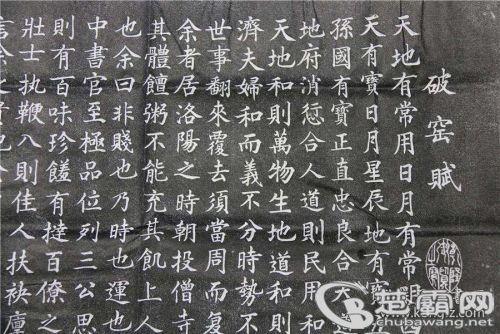 破窑賦
天地有常用日月有常明
天有寶日月星辰地有寶
孫國有寶正直忠良合天
地府消愆合人道則民用和
天地和則萬物生地道和則
濟夫婦和而義不分時勢不
世事翻來覆去須當周而復
余者居洛陽之時朝投僧寺
其體饘粥不能充其飢上人
也余曰非賤也乃時也運也
中書官至極品位列三公思
則有百味珍饈有撻百僚之
壯士执鞭入則佳人扶袂廪
书霸网